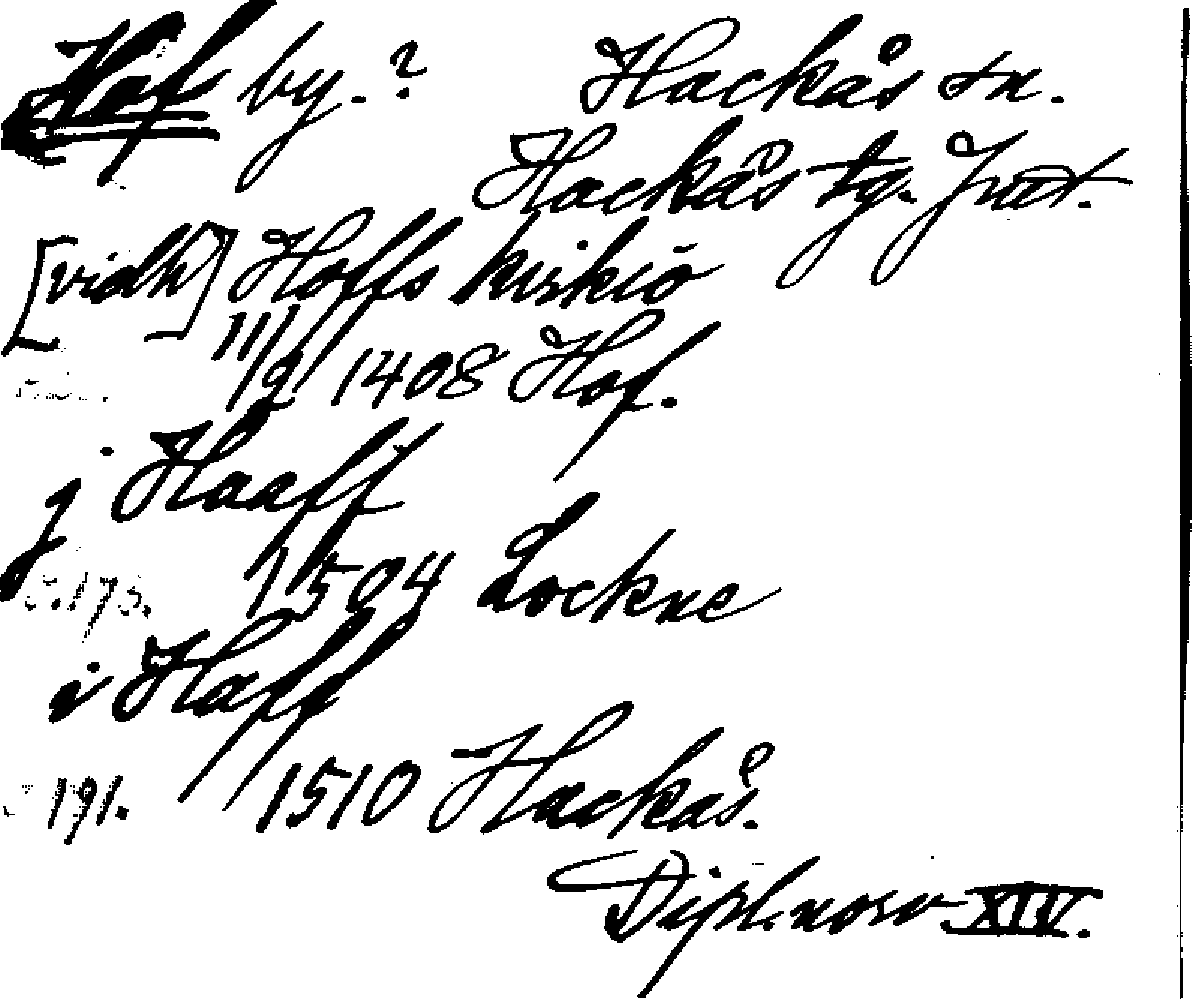 Hof by.? Hackås sn.
Hackås tg. Jmt.
[vidh] Hoffs kirkio
11/9 1408 Hof.
j Haaff
s. 175. 1504 Lockne
i Haff
s 191. 1510 Hackås.
Dipl. norv. XIV.